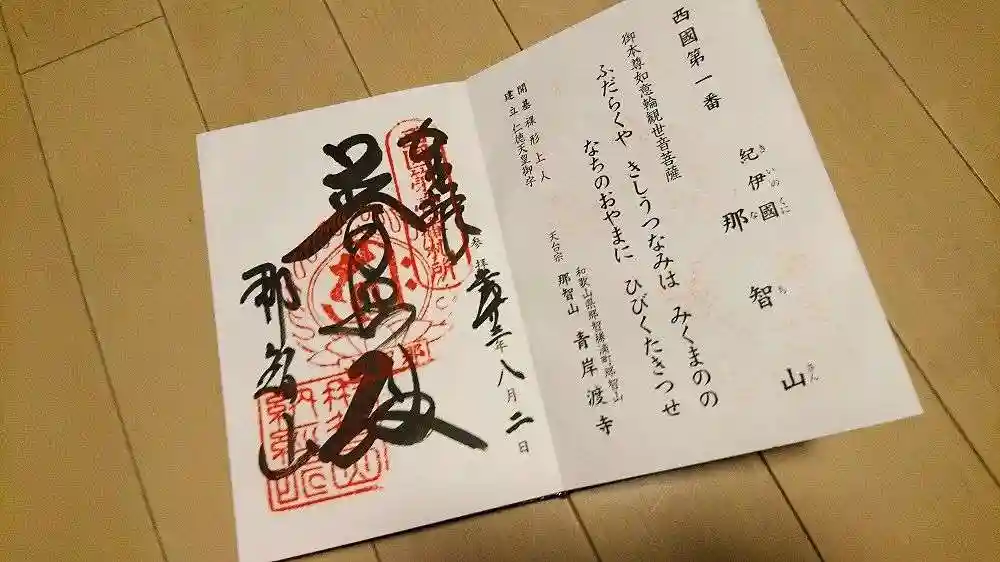 西國第一番
紀伊國
きいのくに
那智山
なちさん
御本尊如意輪観世音菩薩
ふだらくや きしうつなみは みくまのの
なちのおやまに ひびくたきつせ
開基裸形上人
建立仁徳天皇御宇
和歌山県那智勝浦町那智山
天台宗 那智山 青岸渡寺
参拝 年八月二日
奉拝
普照殿
那智山